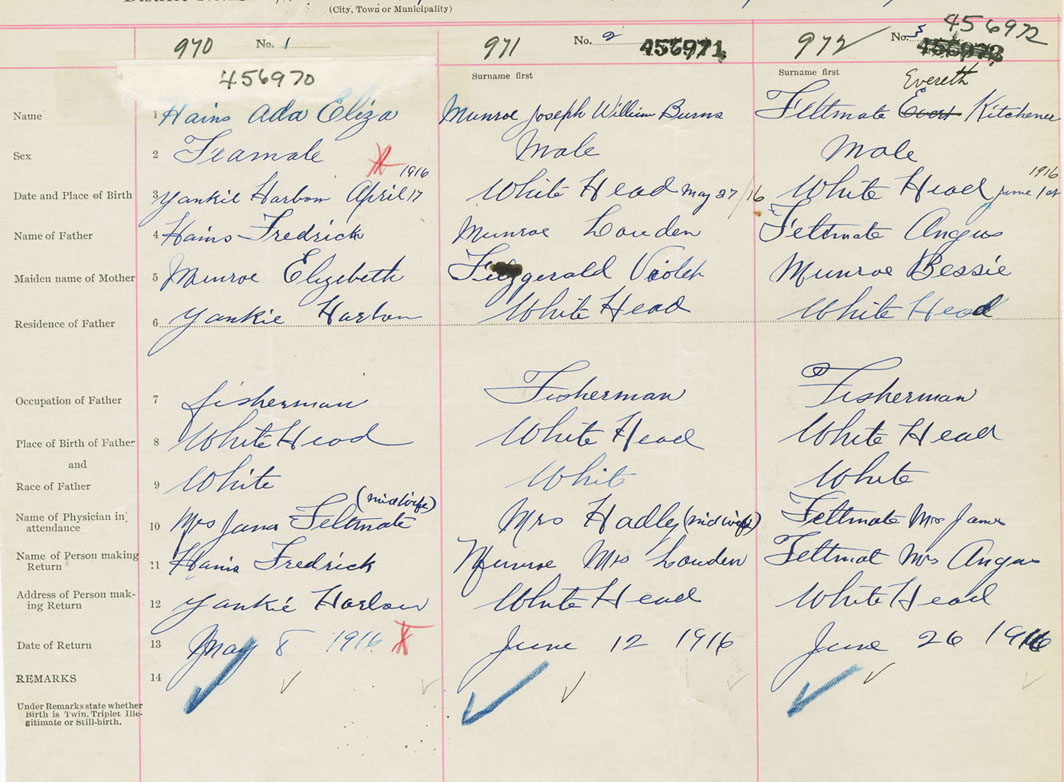 (City, Town or Municipality)
970 No. 1 971 No. 2 456971 972 No. 3 456972
456970 Surname first Surname firstEvereth
Name 1 Hains Ada Eliza Munroe Joseph William Burns Feltmate Evert Kitchener
Sex 2 Feamale Male Male
Date and Place of Birth 3 Yankie Harbon April 17 1916 White Head May 27/16 White Head June 1st 1916
Name of Father 4 Hains Fredrick Munroe Louden Feltmate Angus
Maiden name of Mother 5 Munroe Elizebeth Fitzgerald Violet Munroe Bessie
Residence of Father 6 Yankie Harbon White Head White Head
Occupation of Father 7 fisherman Fisherman Fisherman
Place of Birth of Father 8 White Head White Head White Head
and
Race of Father 9 White Whit White
Name of Physician in attendance 10 Mrs Jams Feltmate (midwife) Mrs Hadley (midwife) Feltmate Mrs James
Name of Person making Return 11 Hains Fredrick Munroe Mrs Louden Feltmat Mrs Angus
Address of Person making Return 12 Yankie Harbour White Head White Head
Date of Return 13 May 8 1916 June 12 1916 June 26 1916
REMARKS 14
Under Remarks state whether
Birth is Twin, Triplet Ille-
gitimate or Still-birth.